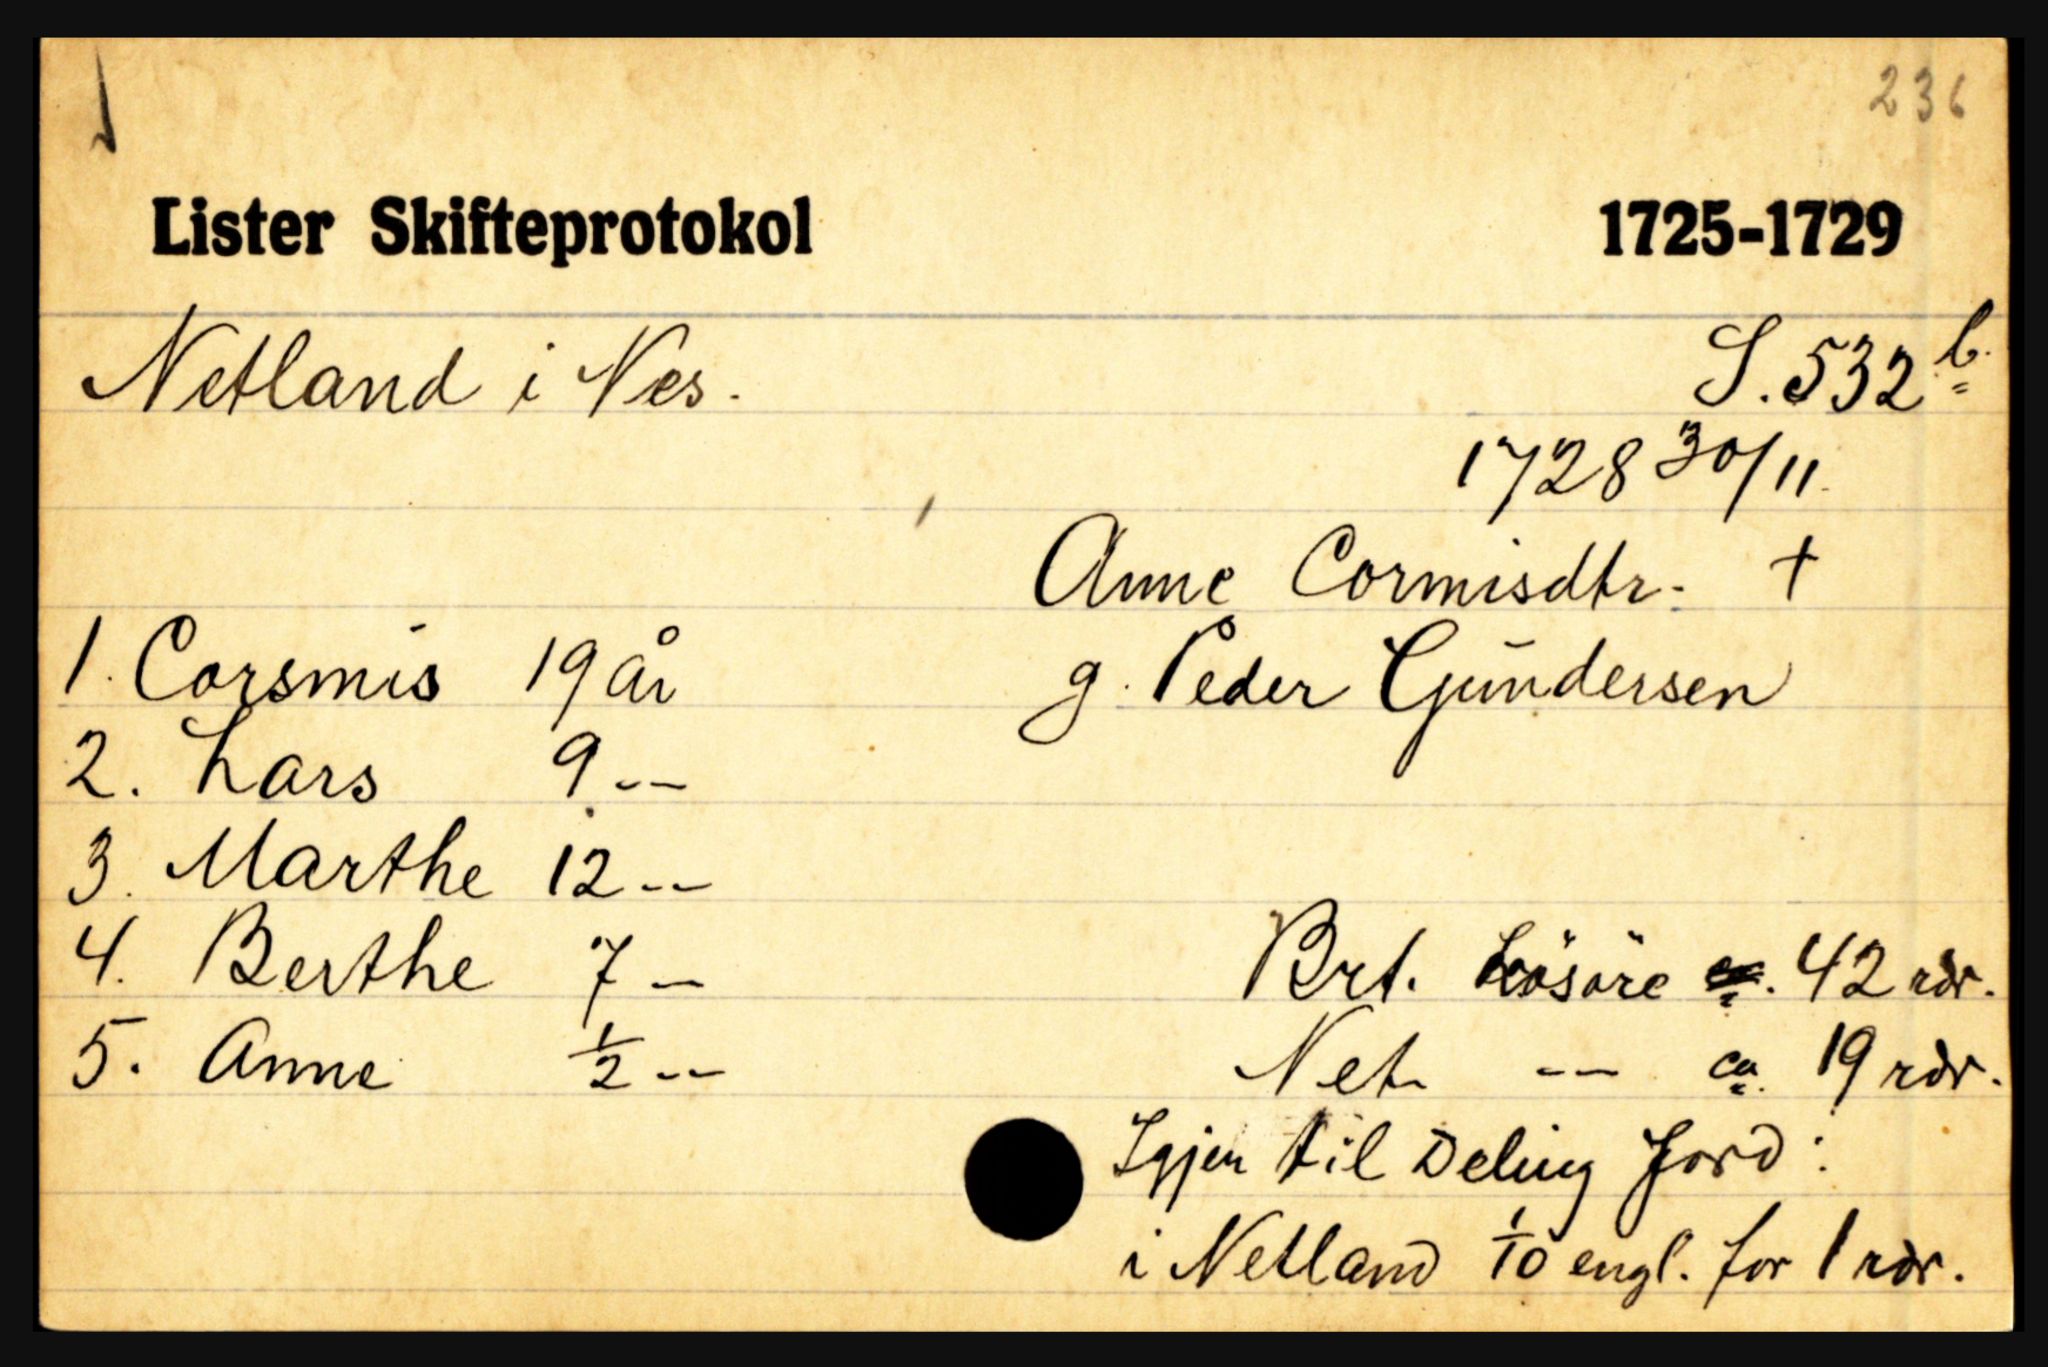 236
Lister Skifteprotokol 1725-1729
Netland i Nes. S. 532 b.
1728 30/11.
Anne Cormisdtr. +
g. Peder Gundersen
1. Corsmis 19 år
2. Lars 9 --
3. Marthe 12 --
4. Berthe 7 --
5. Anne 1/2 --
Brt. Lösöre ca. 42 rdr.
Net. -- ca. 19 rdr.
Igjen til Deling Jord:
i Netland 1/10 engl. for 1 rdr.